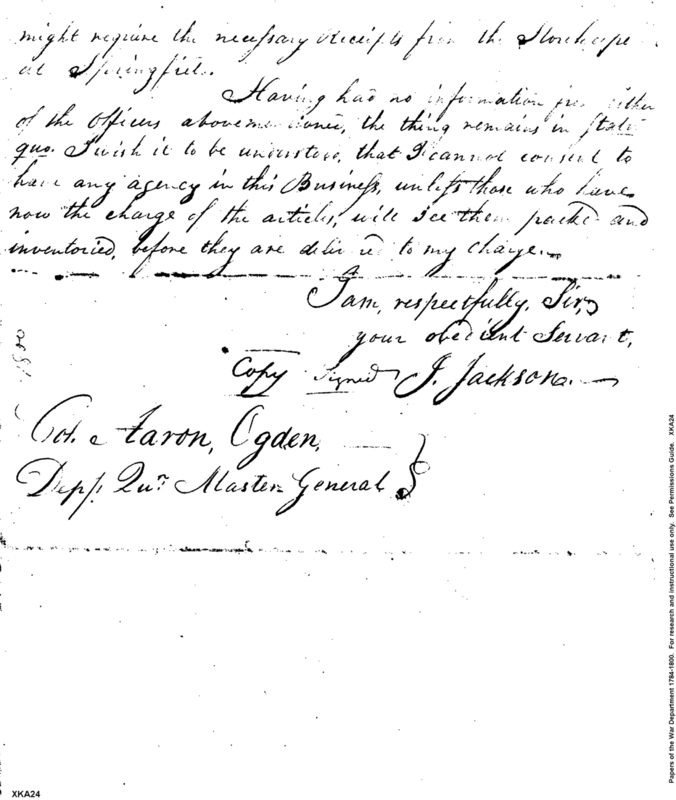 might require the necessary Receipts from the Storekeepe
at Springfield.
Having had no information from either
of the officers abovementioned, the thing remains in Statu
quo. I wish it to be understood, that I cannot consent to
have any agency in this Business, unless those who have
now the charge of the articles, will see them packed and
inventoried, before they are delivered to my charge.
I am, respectfully, Sir,
your obedient Servant,
Copy Signed J. Jackson.
Col. Aaron, Ogden,
Depy. Qur. Master General
1800
Papers of the War Department 1784-1800. For research and instructional use only. See Permissions Guide. XKA24
XKA24